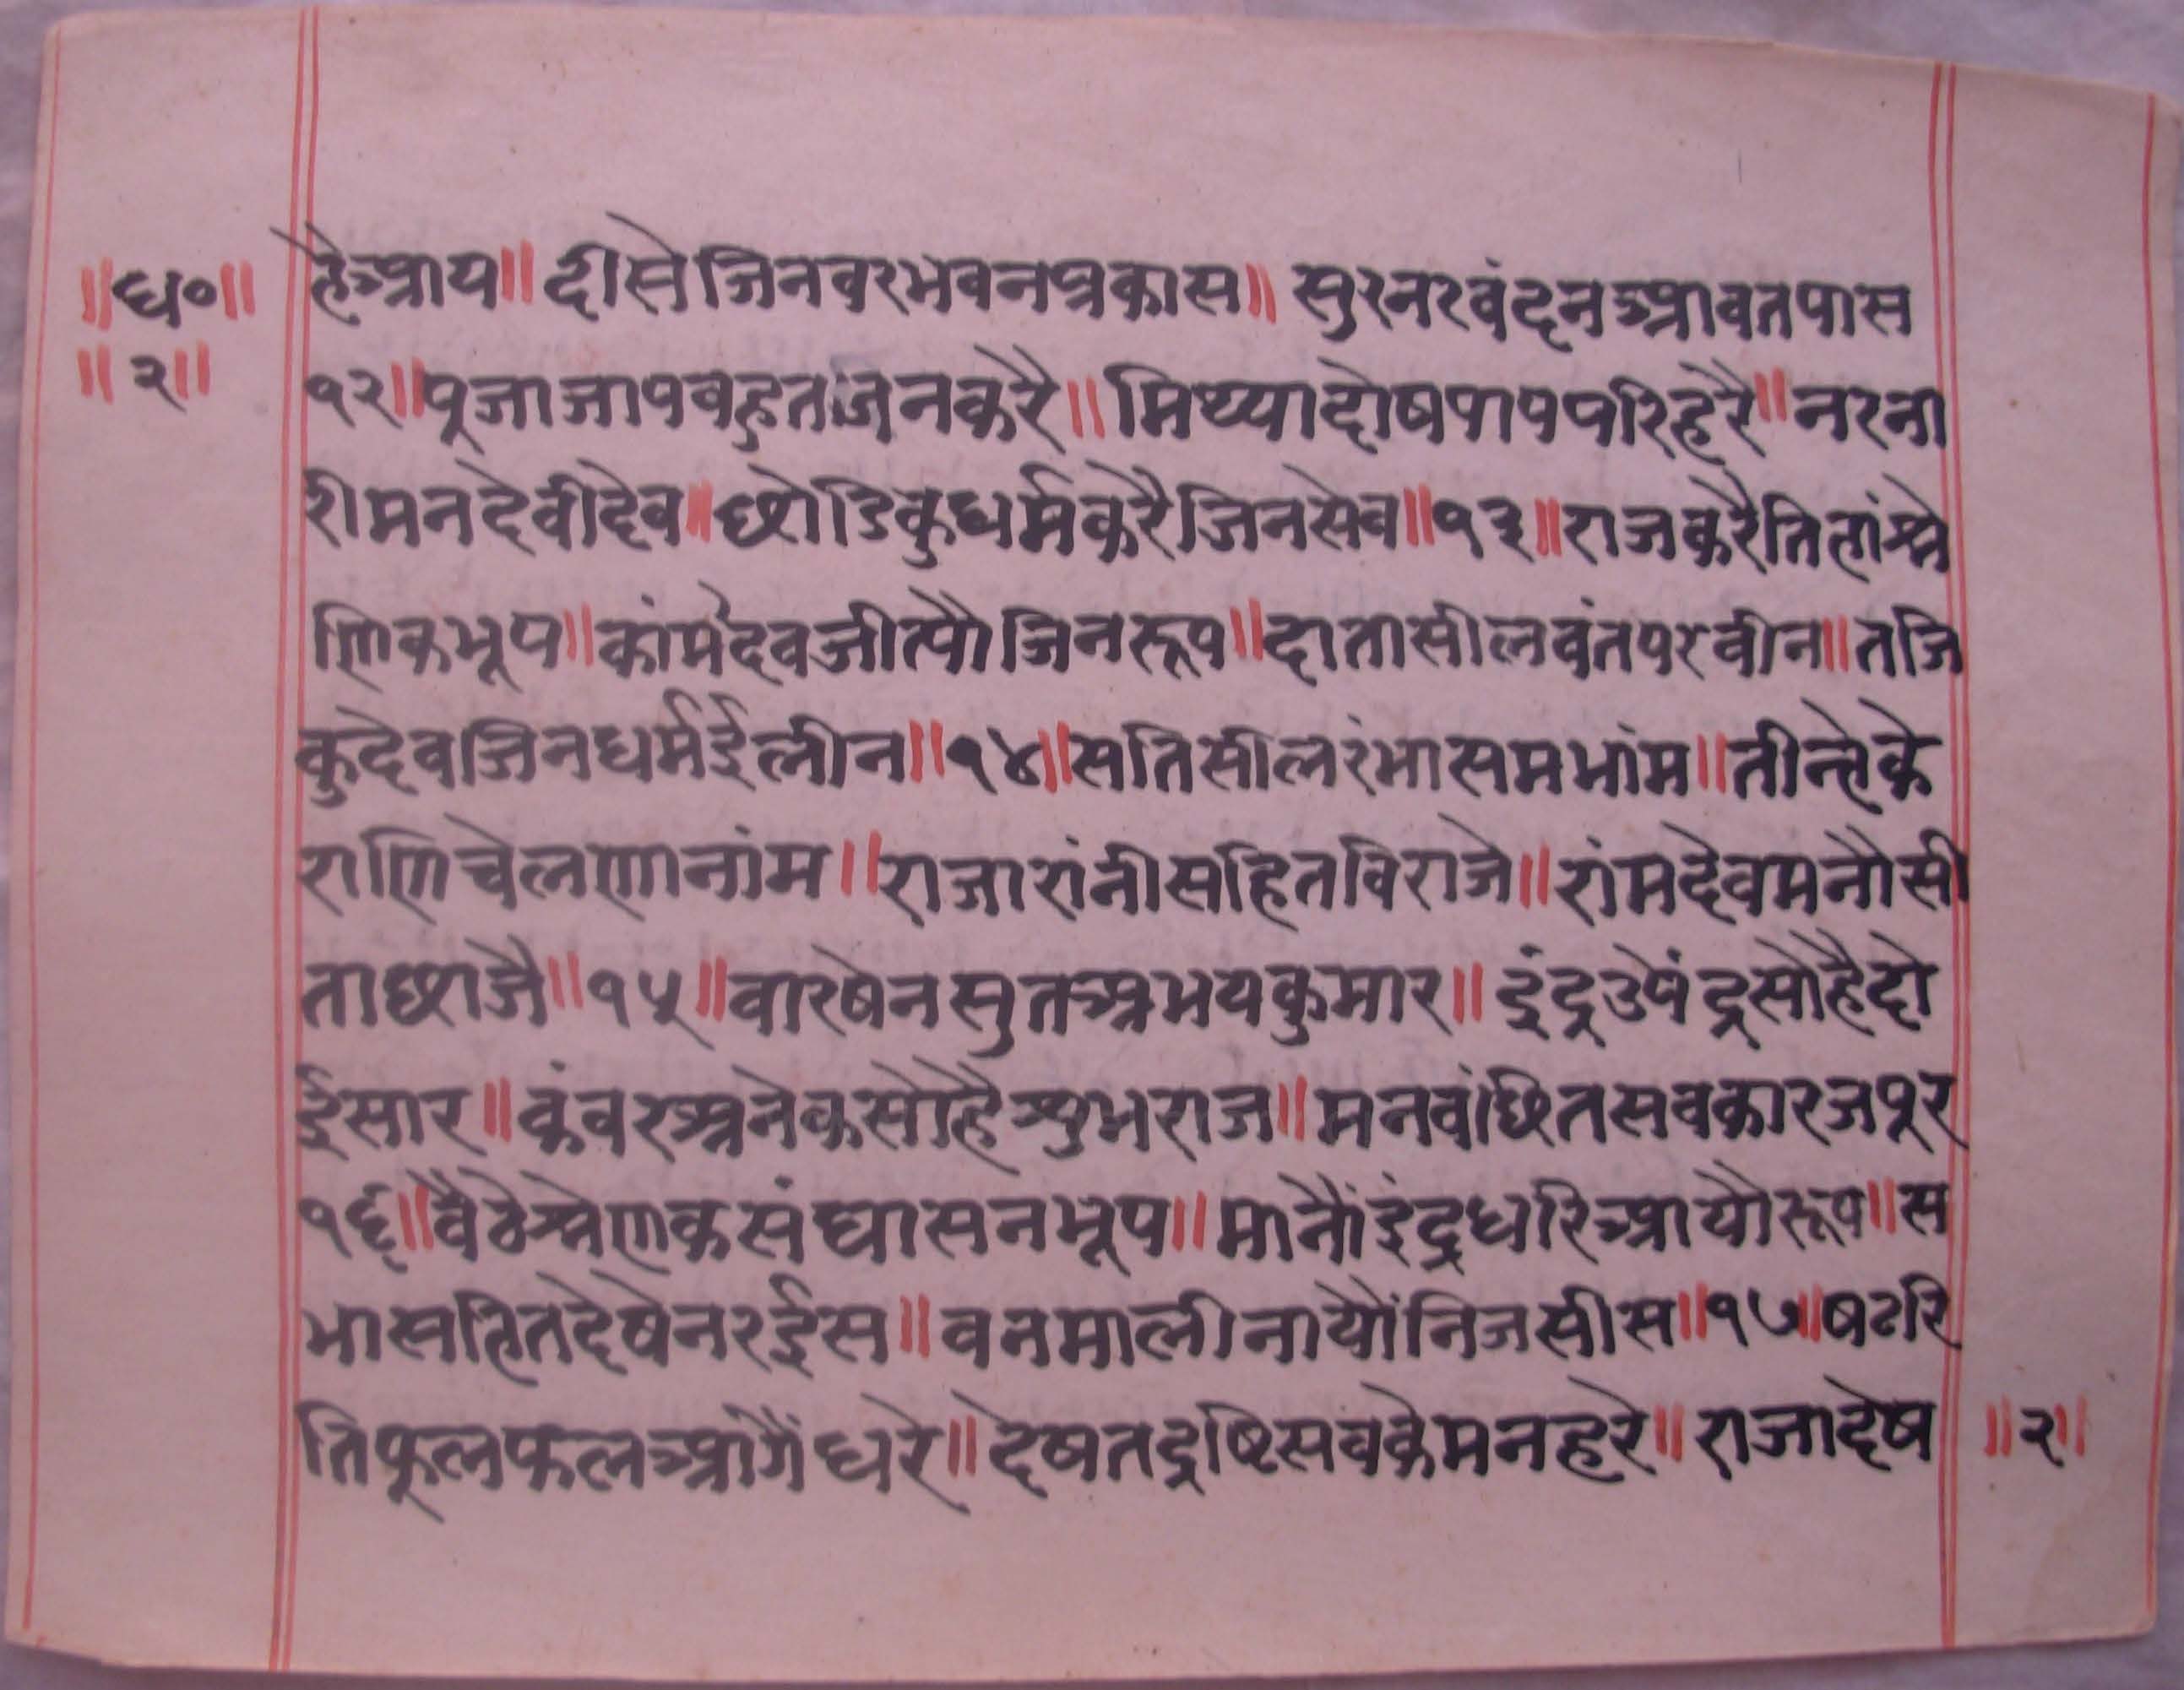 ॥ध०॥ हैआय॥ दीसे जिनवरभवनप्रकास॥ सुरनरवंदनआवतपास
॥२॥ १२॥पूजाजापवहुतजिनकरै॥मिथ्यादोषपापपरिहरै॥नरना
रीमनदेवीदेव॥छोडिकुधर्मकरैजिनसेव॥१३॥राजकरैतिहांश्रे
णिकभूप॥कांमदेवजीत्यौजिनरूप॥दातासीलवंतपरवीन॥तजि
कुदेवजिनधर्मईलीन॥१४॥सतिसीलरंभासमभांम॥तीन्हेके
राणिचेलणानांम॥राजारांनीसहितविराजे॥रांमदेवमनौसी
ताछाजै॥१५॥वारषेनसुतअभयकुमार॥इंद्रउपेंद्रसोहैदो
ईसार॥कंवरअनेकसोहैशुभराज॥मनवांछितसवकारजपूर
१६॥वैठेश्रेणकसंघासनभूप॥मानौंइंद्रधरिआयौरूप॥स
भासहितदेषेनरईस॥वनमालीनायौंनिजसीस॥१७॥षटरि
तिफूलफलआगैंधरे॥देषतद्रष्टिसवकेमनहरे॥राजादेष ॥२॥